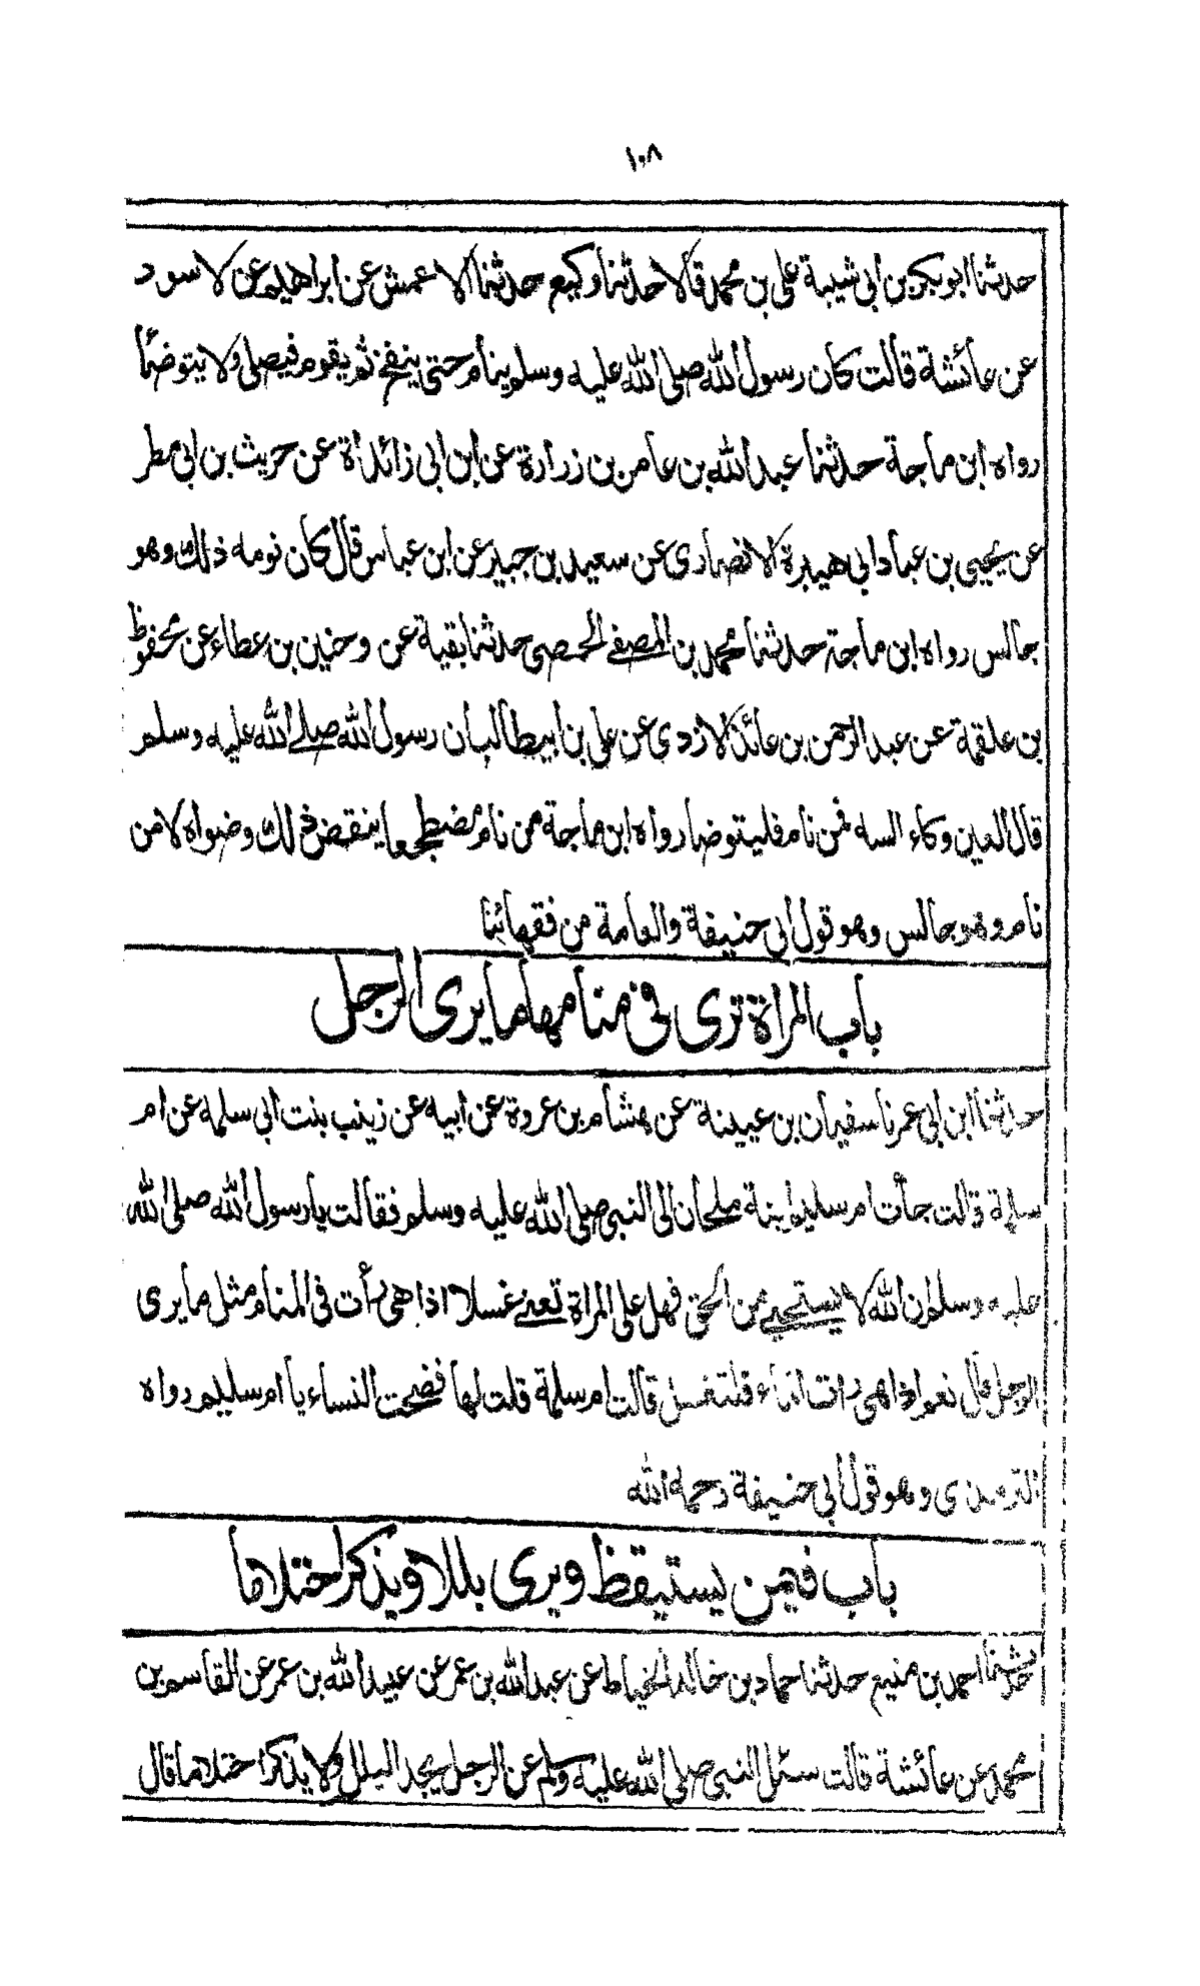 ١٠٨
حدثنا ابو بكر بن ابي شيبة علي بن محمد قالا حدثنا وكيع حدثنا الاعمش عن ابراهيم عن الاسود
عن عائشة قالت كان رسول الله صلى الله عليه وسلم ينام حتى ينفخ ثم يقوم فيصلي ولا يتوضأ
رواه ابن ماجة حدثنا عبد الله بن عامر بن زرارة عن ابن ابي زائدة عن حريث بن ابي مطر
عن يحيى بن عباد ابي هبيرة الانصاري عن سعيد بن جبير عن ابن عباس قال كان نومه ذلك وهو
جالس رواه ابن ماجة حدثنا محمد بن المصفے الحمصي حدثنا بقية عن وضين بن عطاء عن محفوظ
بن علقمة عن عبد الرحمن بن عائذ الازدي عن علي بن ابيطالب ان رسول الله صلے الله عليه وسلم
قال العين وكاء السه فمن نام فليتوضا رواه ابن ماجة من نام مضطجعا ينقض ذلك وضواه لا من
نام وهو جالس وهو قول ابي حنيفة والعامة من فقهائنا
باب المراة ترى في منامها ما يرى الرجل
حدثنا ابن ابي عمر نا سفيان بن عيينة عن هشام بن عروة عن ابيه عن زينب بنت ابي سلمة عن ام
سلمة قالت جأت ام سليم ابنة ملحان الى النبي صلى الله عليه وسلم فقالت يا رسول الله صلى الله
عليه وسلم ان الله لا يستحيے من الحق فهل على المراة تعنے غسلا اذا هي رأت في المنام مثل ما يرى
الرجل قال نعم اذا هي رات الماء فلتغتسل قالت ام سلمة قلت لها فضحت النساء يا ام سليم رواه
الترمذي وهو قول ابي حنيفة رحمه الله
باب فيمن يستيقظ ويرى بللا ويذكر احتلاما
حدثنا احمد بن منيع حدثنا حماد بن خالد الخياط عن عبد الله بن عمر عن عبيد الله بن عمر عن القاسم بن
محمد عن عائشة قالت سئل النبي صلى الله عليه وسلم عن الرجل يجد البلل ولا يذكر احتلاما قال